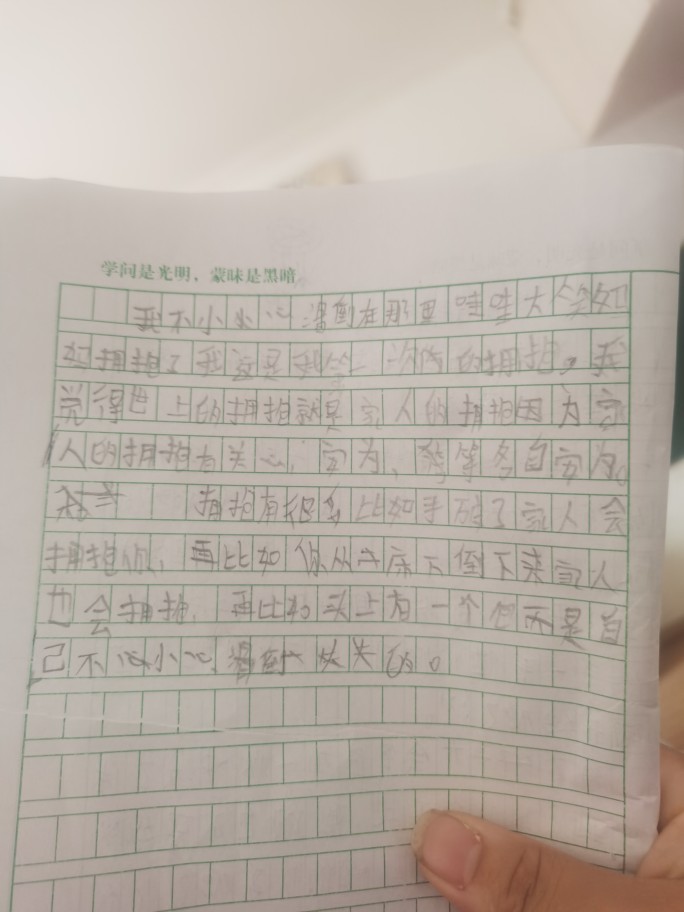 学问是光明，蒙昧是黑暗
我不小心滑倒在那里哇哇大
拥抱了我这是我第一次的拥抱。我
觉得世上的拥抱就是家人的拥抱因为家
人的拥抱有关心、安为、等等各自安为。
拥抱有很多比如手破了家人会
拥抱你，再比如你从床下倒下来家人
也会拥抱，再比如头上有一个包不是自
己不心小心滑倒的。